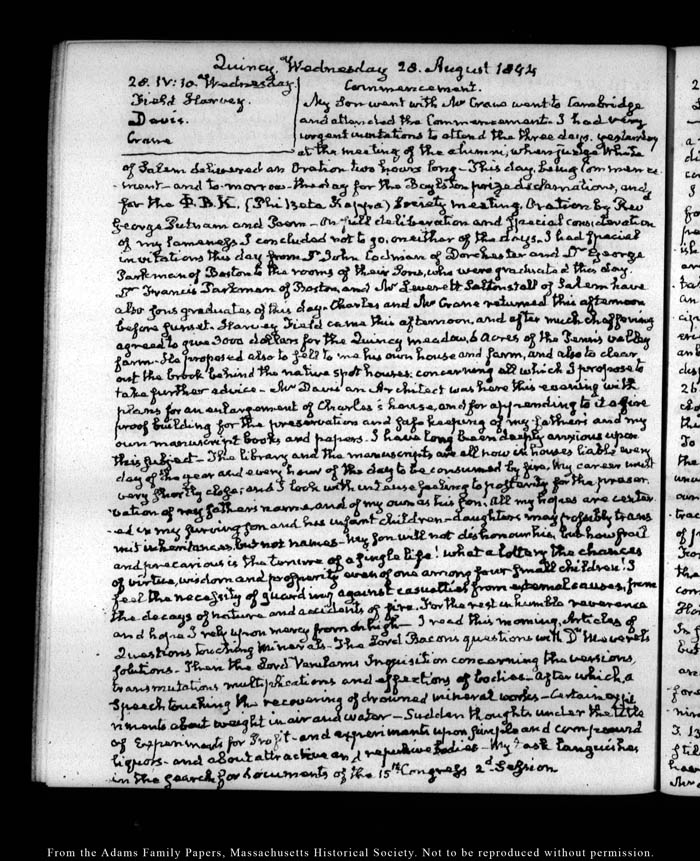 Quincy Wednesday 28. August 1844
28. IV:10. Wednesday.
Field Harvey.
Davis.
Crane
Commencement.
My Son went with Mr Crane went to Cambridge
and attended the Commencement. I had very
urgent invitations to attend the three days, yesterday
at the meeting of the alumni, where Judge White
of Salem delivered an Oration two hours long - This day, being Commence
-ment - and to-morrow - the day for the Boylston prize declamations, and
for the Φ.B.K. (Phi Beta Kappa) Society meeting. Oration by Revd
George Putnam and Poem - On full deliberation and special consideration
of my lameness I concluded not to go, on either of the days. I had special
invitations this day from Dr John Codman of Dorchester and Dr George
Parkman of Boston to the rooms of their Sons, who were graduated this day.
Dr Francis Parkman of Boston, and Mr Leverett Saltonstall of Salem have
also sons graduates of this day. Charles and Mr Crane returned this afternoon
before sunset. Harvey Field came this afternoon, and after much chaffering
agreed to give 3000 dollars for the Quincy meadow, 6 Acres of the Penn's valley
farm - He proposed also to sell to me his own house and farm, and also to clear
out the brook behind the native spot houses: concerning all which I propose to
take further advice - Mr Davis an Architect was here this evening with
plans for an enlargement of Charles's house, and for appending to it a fire
proof building for the preservation and safe keeping of my father's and my
own manuscript books and papers. I have long been deeply anxious upon
this subject - The library and the manuscripts are all now in houses liable every
day of the year and every hour of the day to be consumed by fire. My career must
very shortly close; and I look with intense feeling to posterity for the preser
vation of my father's name, and of my own as his Son. All my hopes are center
-ed in my surviving son and his infant children - daughters may possibly trans
mit inheritances, but not names - My Son will not dishonour his; but how frail
and precarious is the tenure of a single life! what a lottery the chances
of virtue, wisdom and prosperity even of one among four small children! I
feel the necessity of guarding against casualties from external causes, from
the decays of nature and accidents of fire. For the rest in humble reverence
and hope I rely upon mercy from on high - I read this morning, Articles of
Questions touching Minerals - The Lord Bacons questions with Dr Meverels
solutions - Then the Lord Verulams Inquisition concerning the versions,
transmutations multiplications and effections of bodies - After which, a
Speech touching the recovering of drowned mineral works - Certain expe
riments about weight in air and water - Sudden thoughts under the title
of Experiments for Profit - and experiments upon simple and compound
liquors - and about attractive and repulsive bodies - My task languishes
in the search for documents of the 15th Congress 2d Session
From the Adams Family Papers, Massachusetts Historical Society. Not to be reproduced without permission.